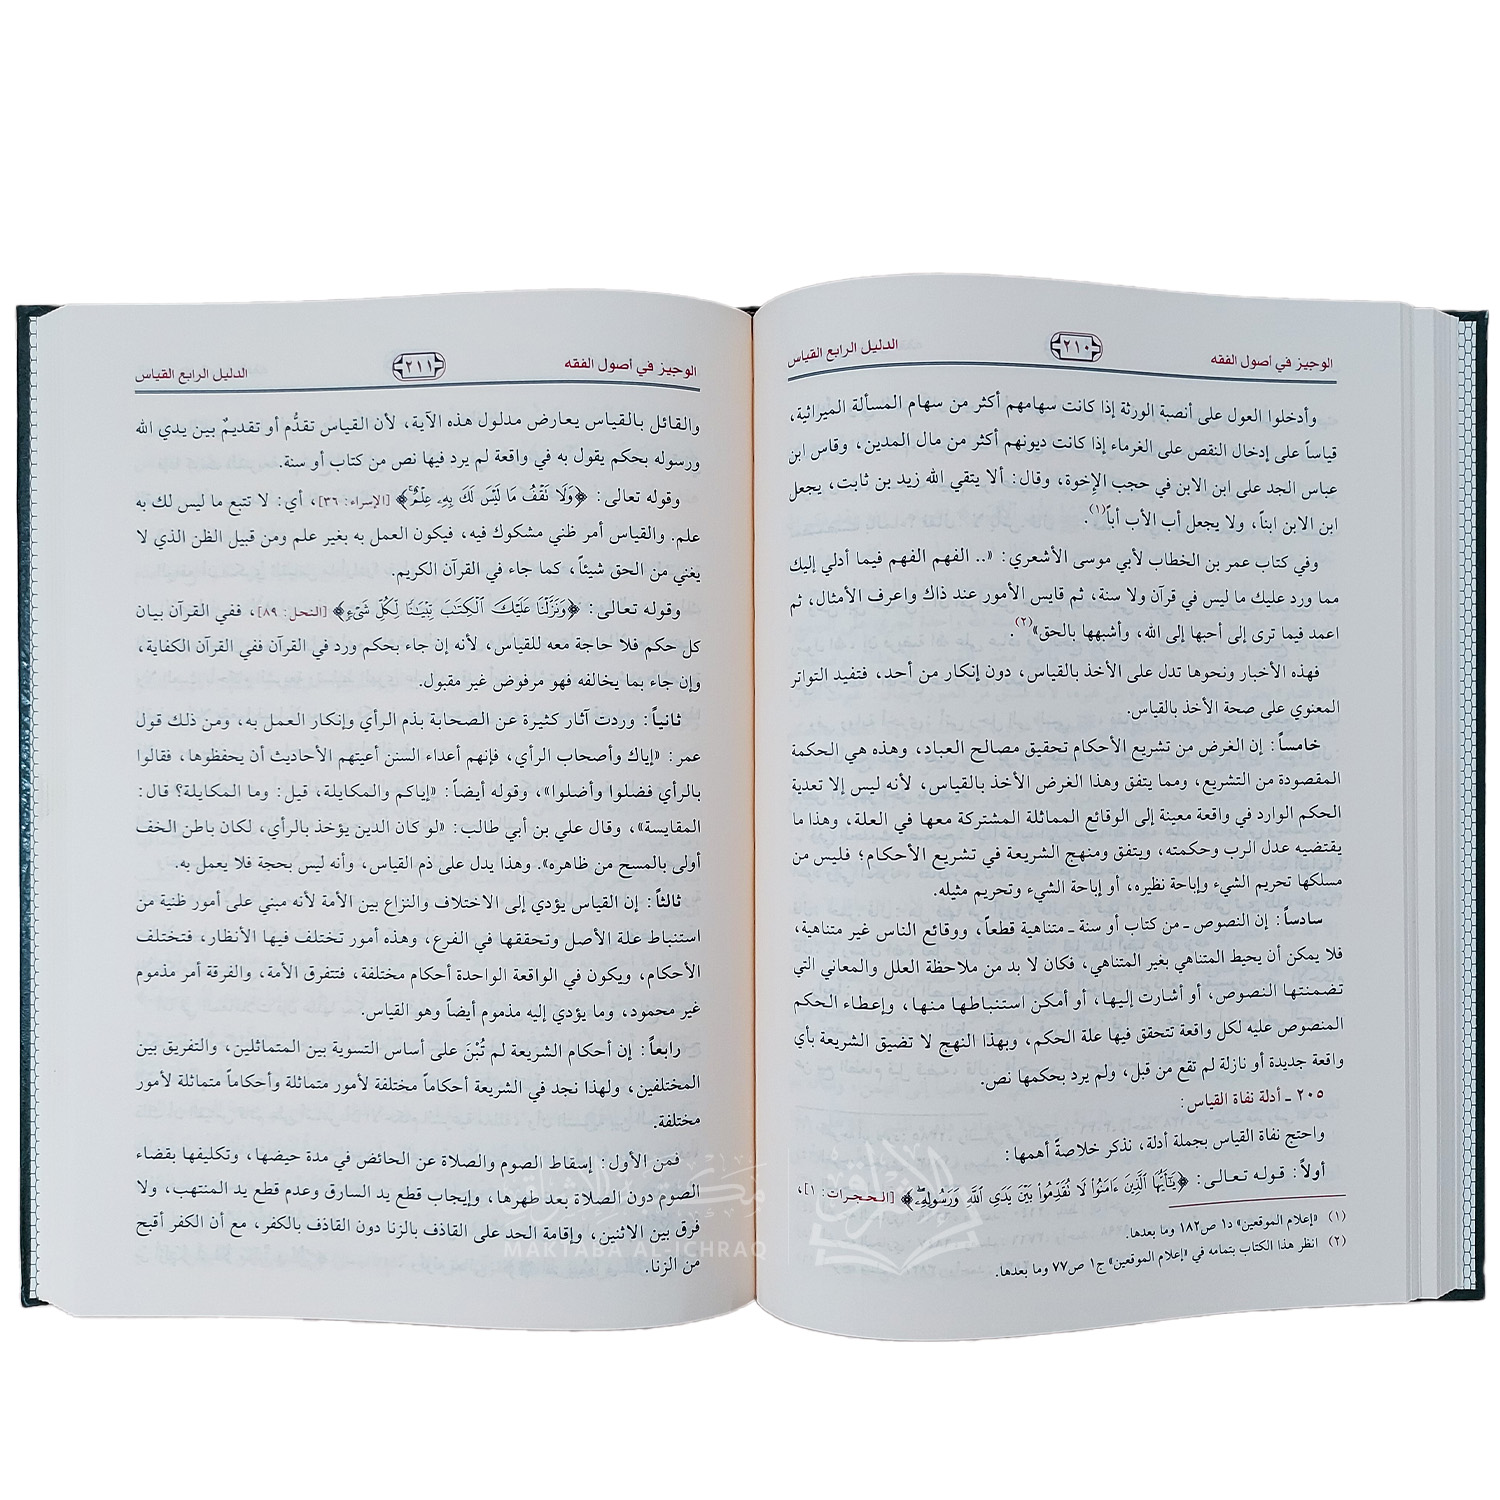 الوجيز في أصول الفقه
٢١٠
الدليل الرابع القياس
وأدخلوا العول على أنصبة الورثة إذا كانت سهامهم أكثر من سهام المسألة الميراثية،
قياساً على إدخال النقص على الغرماء إذا كانت ديونهم أكثر من مال المدين، وقاس ابن
عباس الجد على ابن الابن في حجب الإخوة، وقال: ألا يتقي الله زيد بن ثابت، يجعل
ابن الابن ابناً، ولا يجعل أب الأب أباً(١).
وفي كتاب عمر بن الخطاب لأبي موسى الأشعري: «.. الفهم الفهم فيما أدلي إليك
مما ورد عليك ما ليس في قرآن ولا سنة، ثم قايس الأمور عند ذاك واعرف الأمثال، ثم
اعمد فيما ترى إلى أحبها إلى الله، وأشبهها بالحق»(٢).
فهذه الأخبار ونحوها تدل على الأخذ بالقياس، دون إنكار من أحد، فتفيد التواتر
المعنوي على صحة الأخذ بالقياس.
خامساً: إن الغرض من تشريع الأحكام تحقيق مصالح العباد، وهذه هي الحكمة
المقصودة من التشريع، ومما يتفق وهذا الغرض الأخذ بالقياس، لأنه ليس إلا تعدية
الحكم الوارد في واقعة معينة إلى الوقائع المماثلة المشتركة معها في العلة، وهذا ما
يقتضيه عدل الرب وحكمته، ويتفق ومنهج الشريعة في تشريع الأحكام؛ فليس من
مسلكها تحريم الشيء وإباحة نظيره، أو إباحة الشيء وتحريم مثيله.
سادساً: إن النصوص ـ من كتاب أو سنة ـ متناهية قطعاً، ووقائع الناس غير متناهية،
فلا يمكن أن يحيط المتناهي بغير المتناهي، فكان لا بد من ملاحظة العلل والمعاني التي
تضمنتها النصوص، أو أشارت إليها، أو أمكن استنباطها منها، وإعطاء الحكم
المنصوص عليه لكل واقعة تتحقق فيها علة الحكم، وبهذا النهج لا تضيق الشريعة بأي
واقعة جديدة أو نازلة لم تقع من قبل، ولم يرد بحكمها نص.
٢٠٥ ـ أدلة نفاة القياس:
واحتج نفاة القياس بجملة أدلة، نذكر خلاصةً أهمها:
أولاً: قوله تعالى: ﴿يَٰٓأَيُّهَا ٱلَّذِينَ ءَامَنُوا۟ لَا تُقَدِّمُوا۟ بَيْنَ يَدَىِ ٱللَّهِ وَرَسُولِهِۦ﴾ [الحجرات: ١]،
(١) «إعلام الموقعين» د١ ص١٨٢ وما بعدها.
(٢) انظر هذا الكتاب بتمامه في «إعلام الموقعين» ج١ ص٧٧ وما بعدها.
الوجيز في أصول الفقه
٢١١
الدليل الرابع القياس
والقائل بالقياس يعارض مدلول هذه الآية، لأن القياس تقدُّم أو تقديمٌ بين يدي الله
ورسوله بحكم يقول به في واقعة لم يرد فيها نص من كتاب أو سنة.
وقوله تعالى: ﴿وَلَا تَقْفُ مَا لَيْسَ لَكَ بِهِۦ عِلْمٌ﴾ [الإسراء: ٣٦]، أي: لا تتبع ما ليس لك به
علم. والقياس أمر ظني مشكوك فيه، فيكون العمل به بغير علم ومن قبيل الظن الذي لا
يغني من الحق شيئاً، كما جاء في القرآن الكريم.
وقوله تعالى: ﴿وَنَزَّلْنَا عَلَيْكَ ٱلْكِتَٰبَ تِبْيَٰنًا لِّكُلِّ شَىْءٍ﴾ [النحل: ٨٩]، ففي القرآن بيان
كل حكم فلا حاجة معه للقياس، لأنه إن جاء بحكم ورد في القرآن ففي القرآن الكفاية،
وإن جاء بما يخالفه فهو مرفوض غير مقبول.
ثانياً: وردت آثار كثيرة عن الصحابة بذم الرأي وإنكار العمل به، ومن ذلك قول
عمر: «إياك وأصحاب الرأي، فإنهم أعداء السنن أعيتهم الأحاديث أن يحفظوها، فقالوا
بالرأي فضلوا وأضلوا»، وقوله أيضاً: «إياكم والمكايلة، قيل: وما المكايلة؟ قال:
المقايسة»، وقال علي بن أبي طالب: «لو كان الدين يؤخذ بالرأي، لكان باطن الخف
أولى بالمسح من ظاهره». وهذا يدل على ذم القياس، وأنه ليس بحجة فلا يعمل به.
ثالثاً: إن القياس يؤدي إلى الاختلاف والنزاع بين الأمة لأنه مبني على أمور ظنية من
استنباط علة الأصل وتحققها في الفرع، وهذه أمور تختلف فيها الأنظار، فتختلف
الأحكام، ويكون في الواقعة الواحدة أحكام مختلفة، فتتفرق الأمة، والفرقة أمر مذموم
غير محمود، وما يؤدي إليه مذموم أيضاً وهو القياس.
رابعاً: إن أحكام الشريعة لم تُبْنَ على أساس التسوية بين المتماثلين، والتفريق بين
المختلفين، ولهذا نجد في الشريعة أحكاماً مختلفة لأمور متماثلة وأحكاماً متماثلة لأمور
مختلفة.
فمن الأول: إسقاط الصوم والصلاة عن الحائض في مدة حيضها، وتكليفها بقضاء
الصوم دون الصلاة بعد طهرها، وإيجاب قطع يد السارق وعدم قطع يد المنتهب، ولا
فرق بين الاثنين، وإقامة الحد على القاذف بالزنا دون القاذف بالكفر، مع أن الكفر أقبح
من الزنا.
مكتبة الإشراق
MAKTABA AL-ICHRAQ
الإشراق